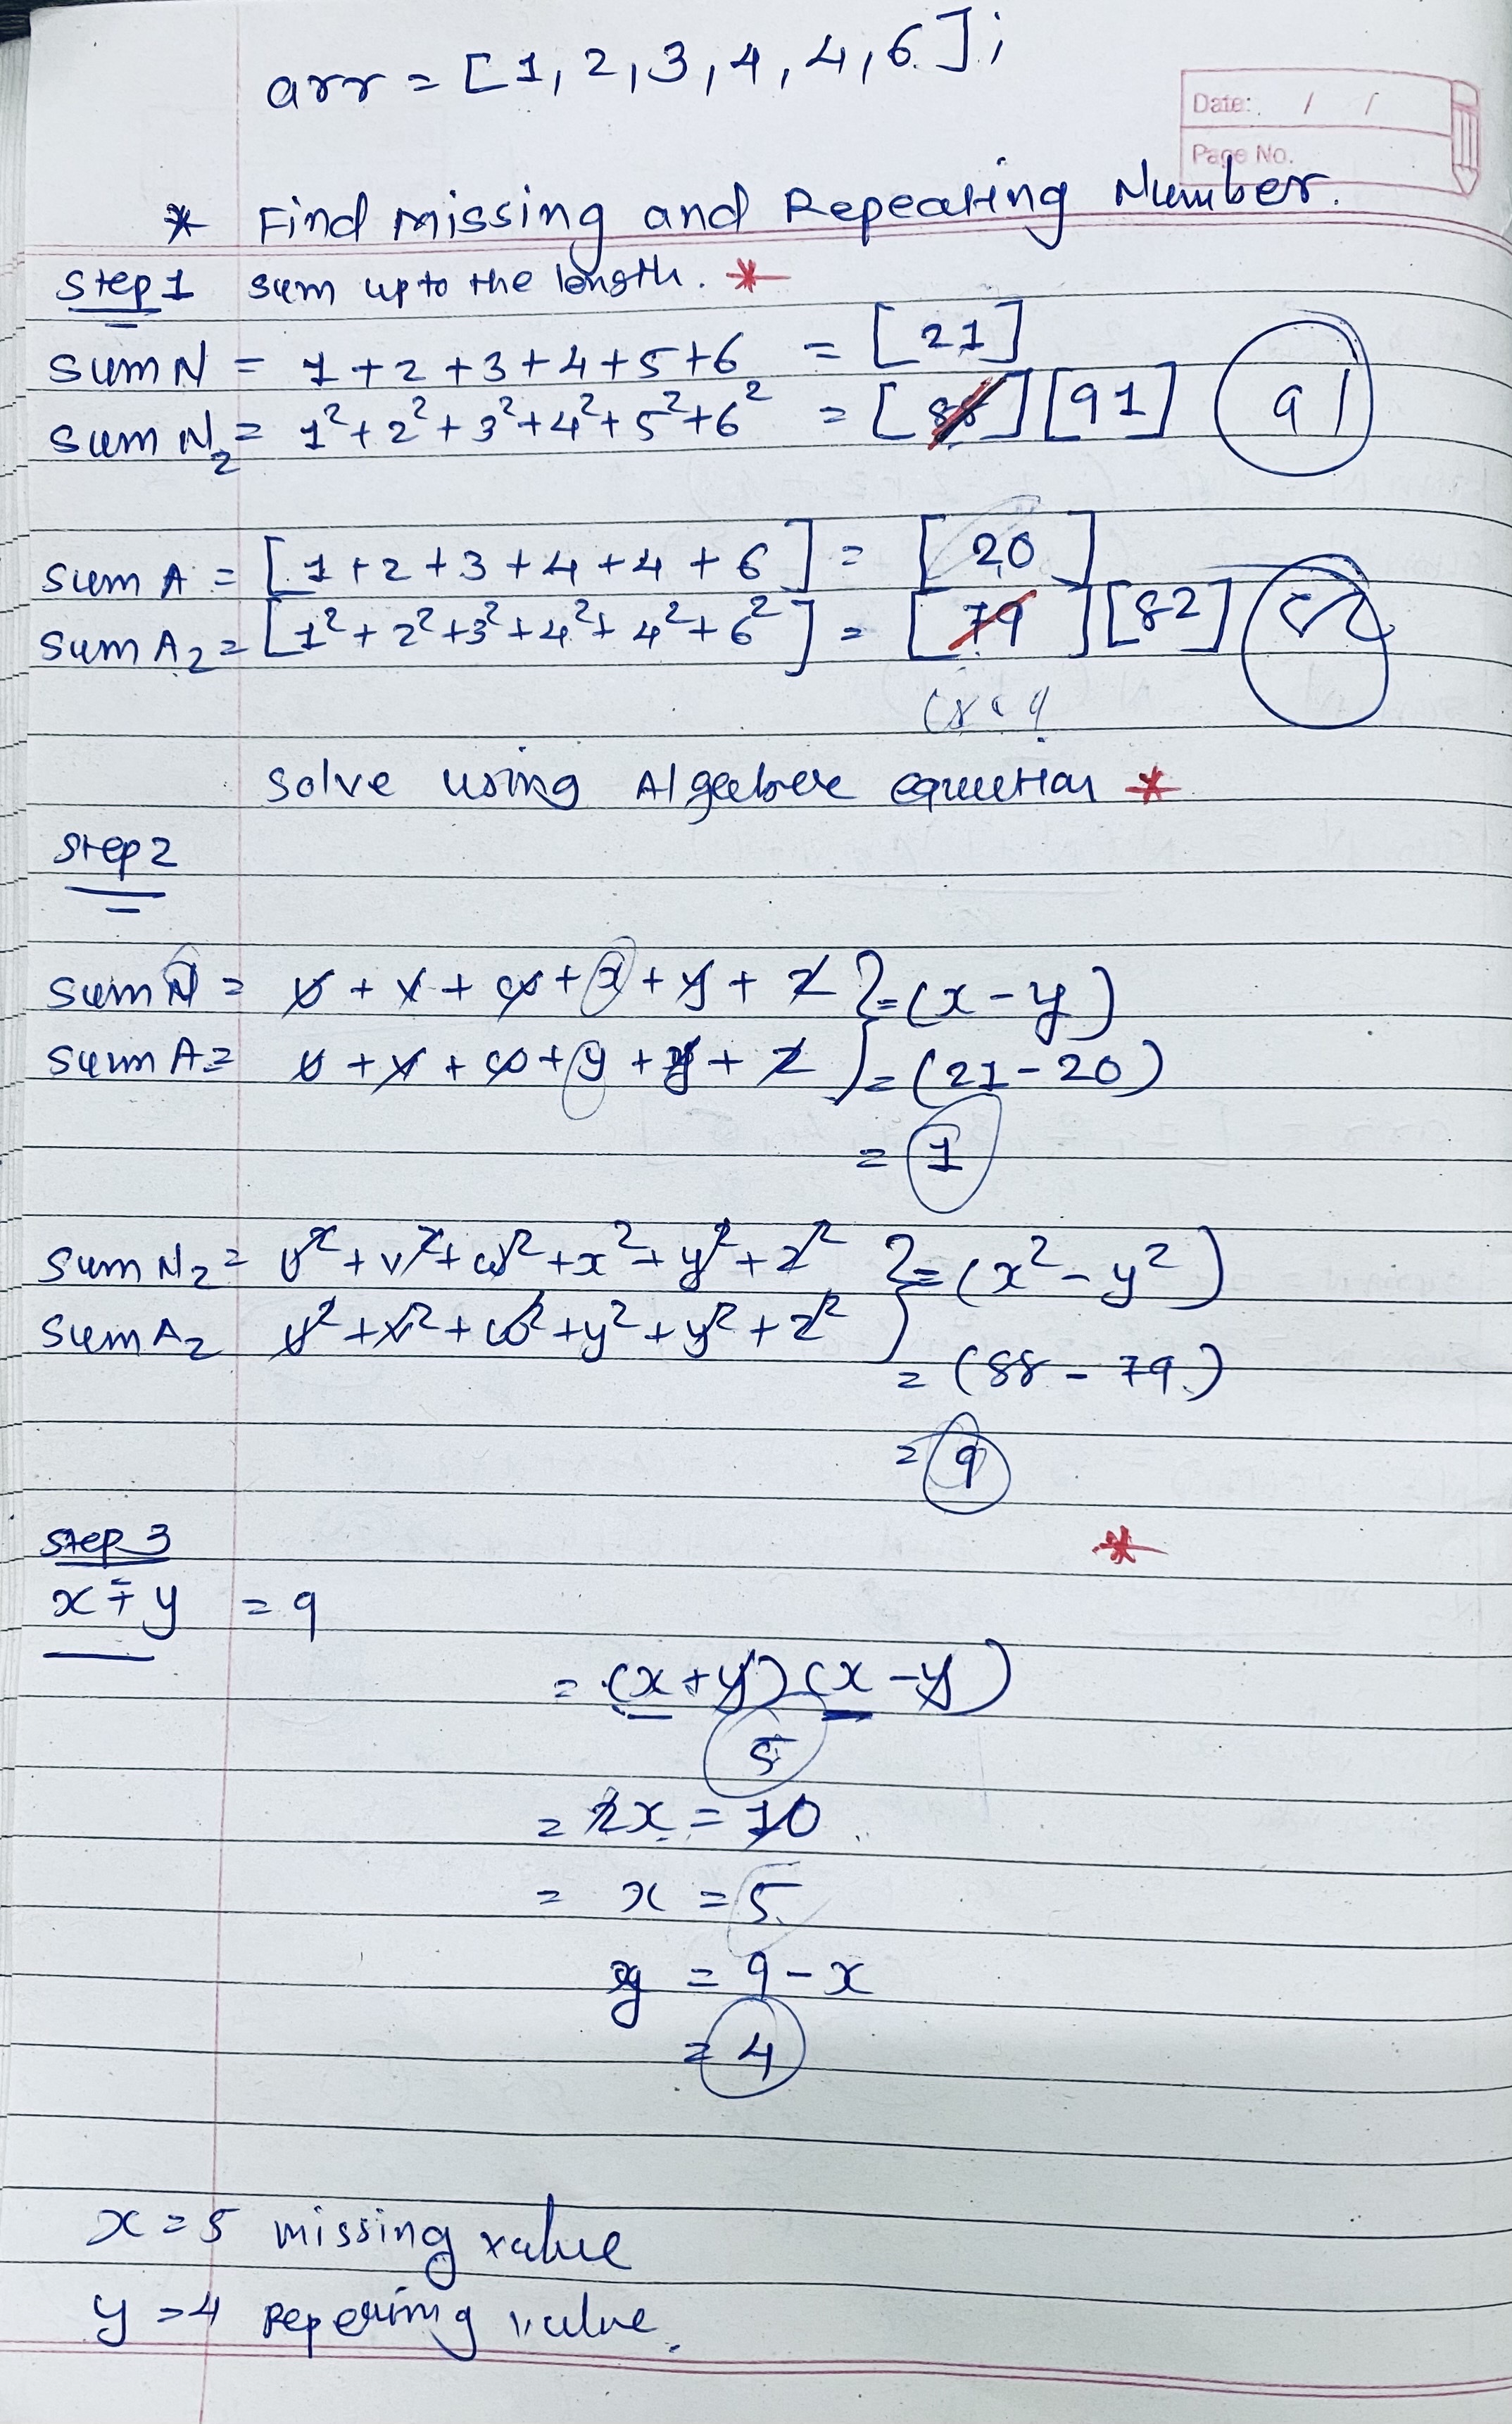 arr = [1, 2, 3, 4, 4, 6];
Date: / /
Page No.
* Find missing and Repeating Number.
Step 1 sum up to the length. *
sum N = 1 + 2 + 3 + 4 + 5 + 6 = [21]
sum N₂ = 1² + 2² + 3² + 4² + 5² + 6² = [88] [91] 91
sum A = [1 + 2 + 3 + 4 + 4 + 6] = [20]
sum A₂ = [1² + 2² + 3² + 4² + 4² + 6²] = [79] [82]
solve using Algeebere equetion *
Step 2
sum N = u + v + w + x + y + z } = (x - y)
sum A = u + v + w + y + y + z } = (21 - 20)
= 1
sum N₂ = u² + v² + w² + x² + y² + z² } = (x² - y²)
sum A₂ u² + v² + w² + y² + y² + z²
= (88 - 79)
= 9
Step 3 *
x + y = 9
= (x + y) (x - y)
5
= 2x = 10
= x = 5
y = 9 - x
= 4
x = 5 missing value
y = 4 Repering value.